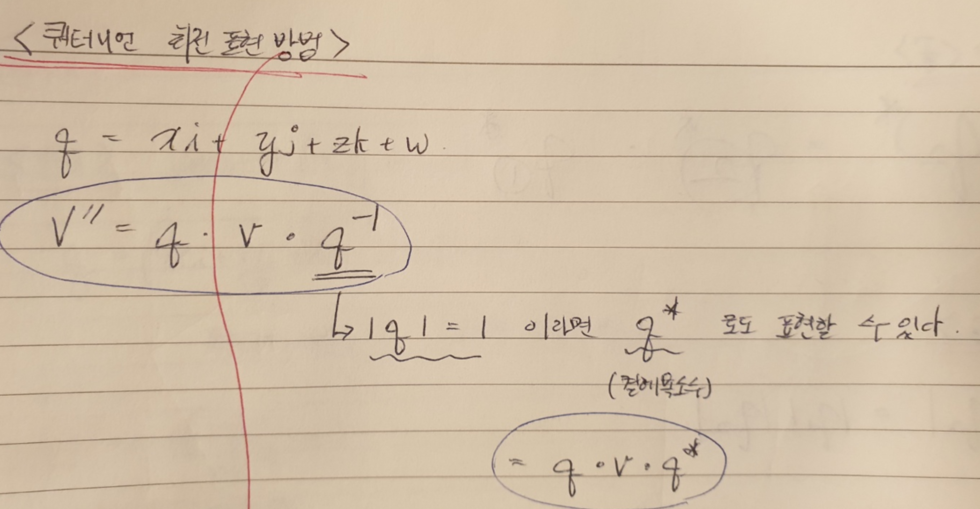 <쿼터니언 회전 표현 방법>
q = xi + yj + zk + w.
V'' = q · v · q⁻¹
↳ |q| = 1 이라면 q* 로도 표현할 수 있다.
(켤레복소수)
= q · v · q*